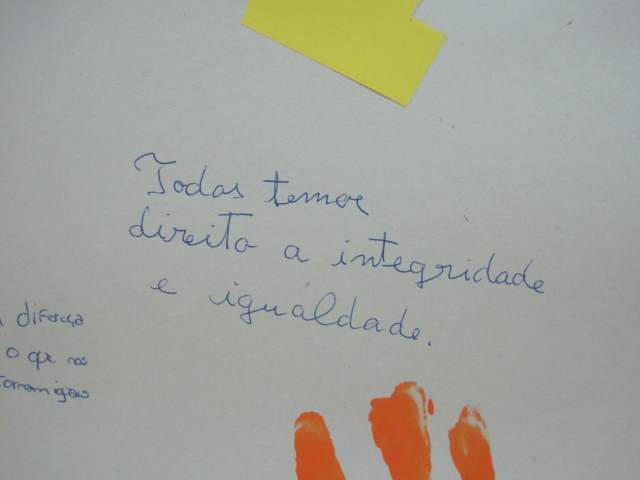 Todas temos
direito a integridade
e igualdade.
diferença
o que nos